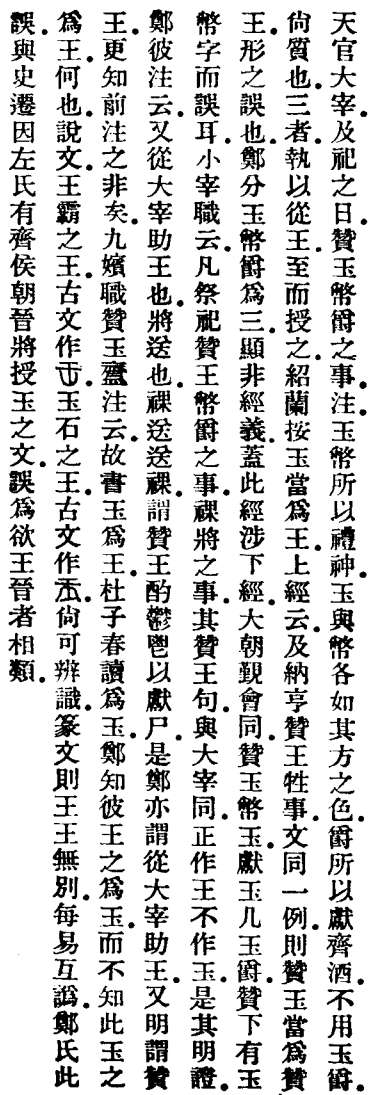 天官大宰。及祀之日。贊玉幣爵之事。注。玉幣所以禮神。玉與幣各如其方之色。爵所以獻齊酒。不用玉爵。
尙質也。三者執以從王。至而授之。紹蘭按。玉當爲王。上經云。及納亨。贊王牲事。文同一例。則贊玉當爲贊
王。形之誤也。鄭分玉幣爵爲三。顯非經義。蓋此經涉下經。大朝覲會同。贊玉幣玉獻玉几玉爵。贊下有玉
幣字而誤耳。小宰職云。凡祭祀。贊王幣爵之事。祼將之事。其贊王句。與大宰同。正作王不作玉。是其明證。
鄭彼注云。又從大宰助王也。將送也。祼送送祼。謂贊王酌鬱鬯以獻尸。是鄭亦謂從大宰助王。又明謂贊
王。更知前注之非矣。九嬪職贊玉齍。注云。故書玉爲王。杜子春讀爲玉。鄭知彼王之爲玉。而不知此玉之
爲王。何也。說文。王霸之王。古文作𠙻。玉石之王。古文作𤣪。尙可辨識。篆文則王王無別。每易互譌。鄭氏此
誤。與史遷因左氏有齊侯朝晉將授玉之文。誤爲欲王晉者相類。